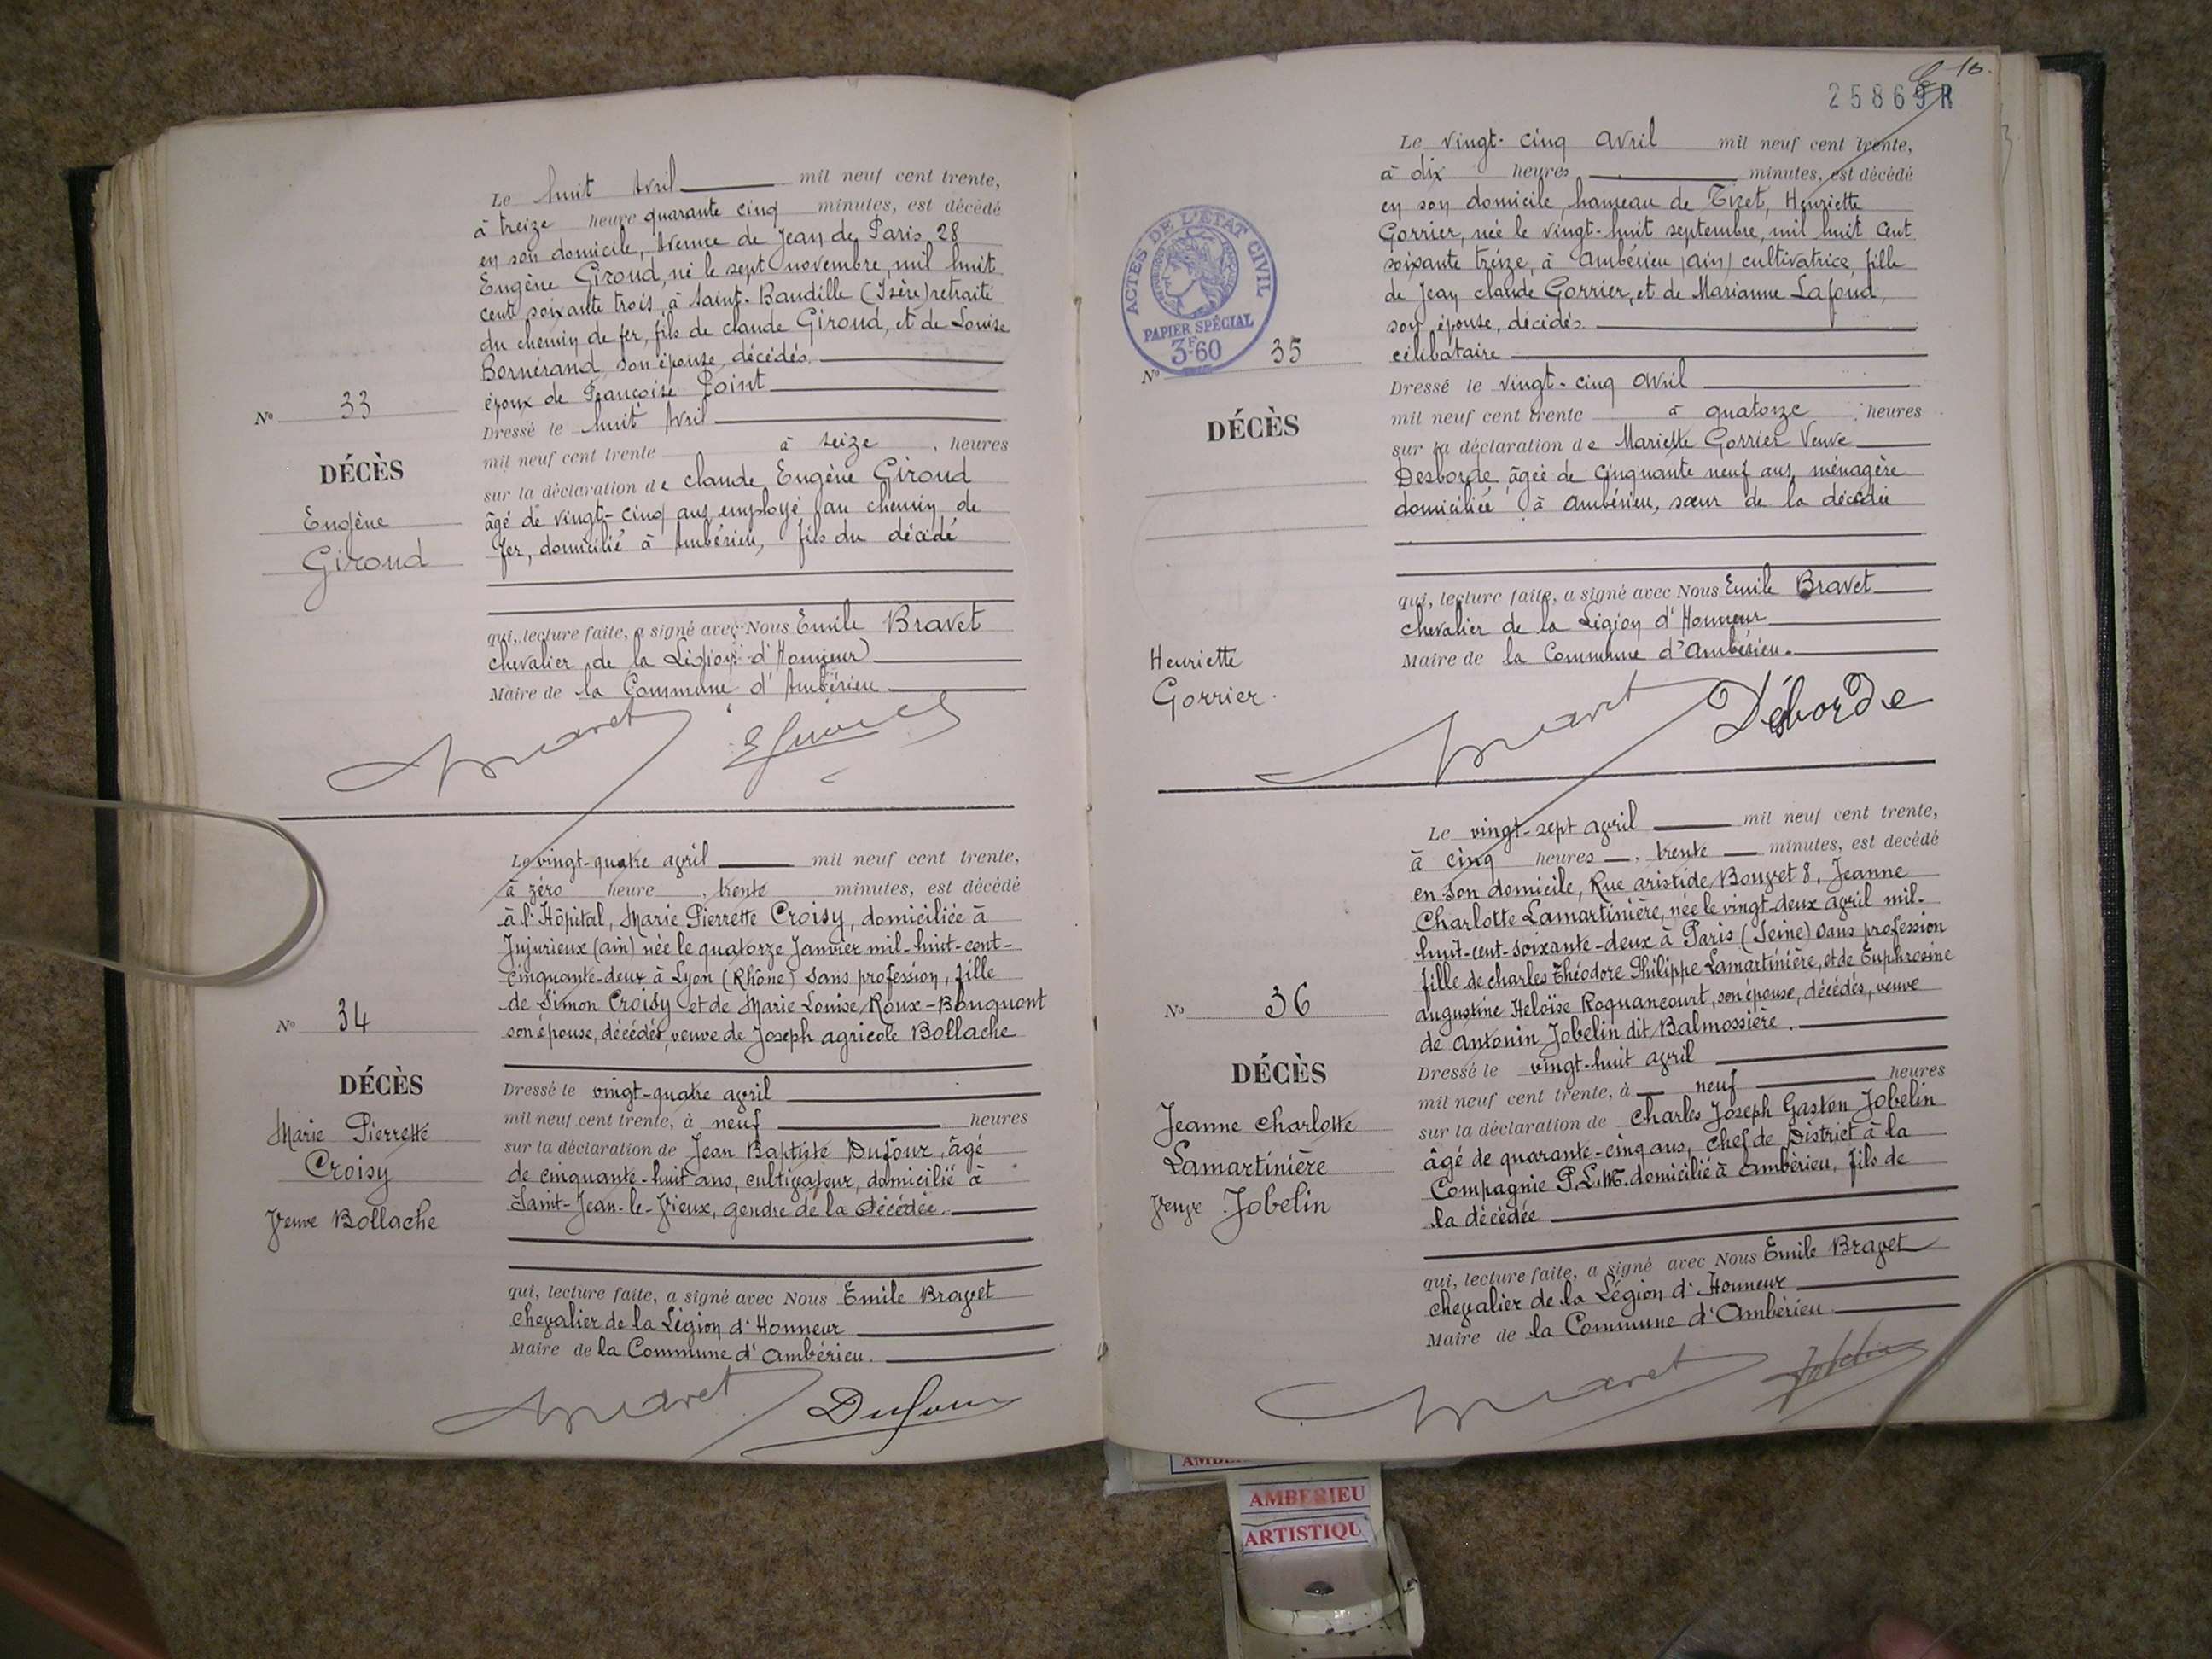 Le huit Avril mil neuf cent trente,
à treize heure quarante cinq minutes, est décédé
en son domicile, Avenue de Jean de Paris, 28
Eugène Giroud, né le sept novembre, mil huit
cent soixante trois, à Saint-Baudille (Isère) retraité
du chemin de fer, fils de claude Giroud, et de Louise
Bornérand, son épouse, décédés.
époux de Françoise Point
Dressé le huit Avril
mil neuf cent trente à seize heures
sur la déclaration de claude Eugène Giroud
âgé de vingt-cinq ans, employé au chemin de
fer, domicilié à Ambérieu, fils du décédé
qui, lecture faite, a signé avec Nous Emile Bravet
chevalier de la Légion d'Honneur
Maire de la Commune d'Ambérieu
Nº 33
DÉCÈS
Eugène
Giroud
Le vingt-quatre avril mil neuf cent trente,
à zéro heure, trente minutes, est décédé
à l'Hôpital, Marie Pierrette Croisy, domiciliée à
Jujurieux (ain) née le quatorze Janvier mil-huit-cent-
cinquante-deux à Lyon (Rhône) sans profession, fille
de Simon Croisy et de Marie Louise Roux-Bonquont
son épouse, décédés, veuve de Joseph agricole Bollache
Dressé le vingt-quatre avril
mil neuf cent trente, à neuf heures
sur la déclaration de Jean Baptiste Dufour, âgé
de cinquante-huit ans, cultivateur, domicilié à
Saint-Jean-le-Vieux, gendre de la décédée.
qui, lecture faite, a signé avec Nous Emile Bravet
chevalier de la Légion d'Honneur
Maire de la Commune d'Ambérieu.
Dufour
Nº 34
DÉCÈS
Marie Pierrette
Croisy
Veuve Bollache
10.
25869R
Le vingt-cinq avril mil neuf cent trente,
à dix heures minutes, est décédé
en son domicile, hameau de Tiret, Henriette
Gorrier, née le vingt-huit septembre, mil huit cent
soixante treize, à Ambérieu (ain) cultivatrice, fille
de Jean claude Gorrier, et de Marianne Lafond,
son épouse, décédés.
célibataire
Dressé le vingt-cinq avril
mil neuf cent trente à quatorze heures
sur la déclaration de Mariette Gorrier Veuve
Desborde, âgée de cinquante neuf ans, ménagère
domiciliée à Ambérieu, sœur de la décédée
qui, lecture faite, a signé avec Nous Emile Bravet
chevalier de la Légion d'Honneur
Maire de la Commune d'Ambérieu.
Déborde
ACTES DE L'ÉTAT CIVIL
PAPIER SPÉCIAL
3F60
Nº 35
DÉCÈS
Henriette
Gorrier.
Le vingt-sept avril mil neuf cent trente,
à cinq heures, trente minutes, est decédé
en son domicile, Rue aristide Bouvet 8, Jeanne
Charlotte Lamartinière, née le vingt-deux avril mil-
huit-cent-soixante-deux à Paris (Seine) sans profession
fille de charles Théodore Philippe Lamartinière, et de Euphrosine
augustine Heloïse Roquancourt, son épouse, décédés, veuve
de antonin Jobelin dit Balmossière.
Dressé le vingt-huit avril
mil neuf cent trente, à neuf heures
sur la déclaration de Charles Joseph Gaston Jobelin
âgé de quarante-cinq ans, Chef de District à la
Compagnie P.L.M. domicilié à Ambérieu, fils de
la décédée
qui, lecture faite, a signé avec Nous Emile Bravet
chevalier de la Légion d'Honneur
Maire de la Commune d'Ambérieu.
Jobelin
Nº 36
DÉCÈS
Jeanne Charlotte
Lamartinière
Veuve Jobelin
AMBERIEU
ARTISTIQU